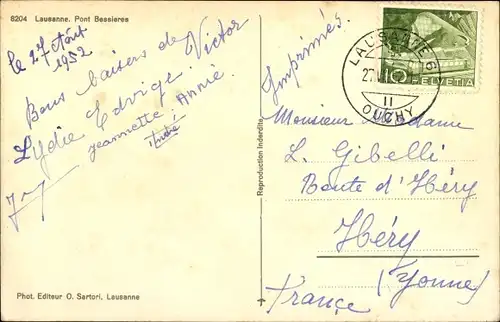 8204 Lausanne. Pont Bessieres
le 27 Août
1952
Bons baisers de Victor
Lydie Edvige
Jeannette Annie
André
Phot. Editeur O. Sartori, Lausanne
Reproduction Interdite
Imprimés.
LAUSANNE 6
27
11
OUCHY
10 HELVETIA
Monsieur Madame
L. Gibelli
Route d'Héry
Héry
(Yonne)
France